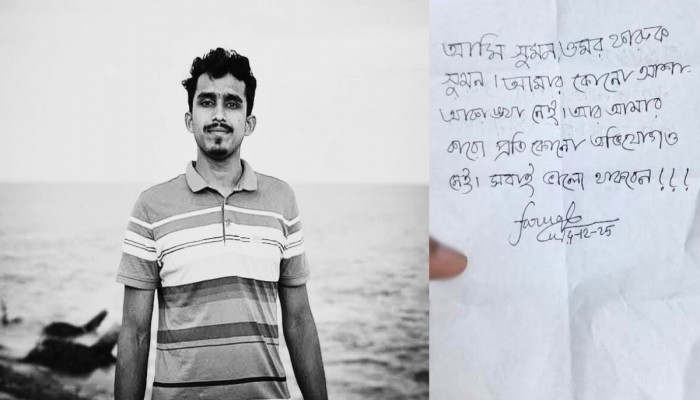 আমি সুমন, ওমর ফারুক
সুমন। আমার কোনো আশা-
আকাঙ্খা নেই। আর আমার
কারো প্রতি কোনো অভিযোগও
নেই। সবাই ভালো থাকবেন!!!
14-12-25